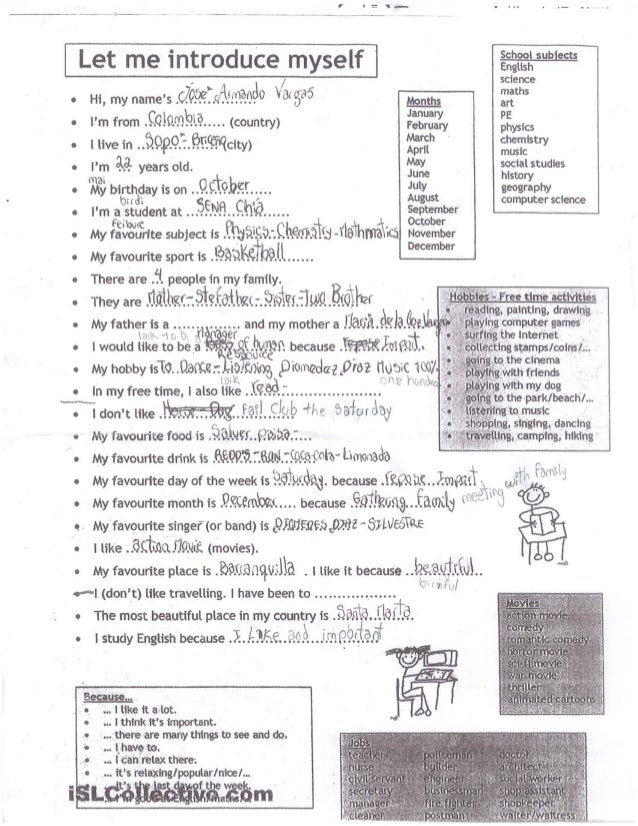 Let me introduce myself
School subjects
English
science
maths
art
PE
physics
chemistry
music
social studies
history
geography
computer science
Months
January
February
March
April
May
June
July
August
September
October
November
December
Hi, my name's Jose Armando Vargas
I'm from Colombia (country)
I live in Sopo - (city)
I'm 22 years old.
mai
My birthday is on October
birdi
I'm a student at SENA Chia
My favourite subject is Physics - Chemistry -
My favourite sport is Basketball
There are 4 people in my family.
They are Mather - Stefather - Sister - Two Brother
My father is a ............... and my mother a Maria de la
manager
I would like to be a of human because
Ressource
My hobby is To Dance - Listening Diomedez Diaz Music 100%
laik one hundred
In my free time, I also like read -
I don't like Club the Saturday
My favourite food is paisa -
My favourite drink is REDD'S - RON - Coca Cola - Limonada
My favourite day of the week is Saturday. because
with family
My favourite month is December because family meeting
My favourite singer (or band) is DIAZ - SILVESTRE
I like action Movie (movies).
My favourite place is Barranquilla . I like it because beautrful
I (don't) like travelling. I have been to ..................
The most beautiful place in my country is Santa Marta
I study English because I Like and important
Hobbies - Free time activities
reading, painting, drawing
playing computer games
surfing the Internet
collecting stamps/coins/...
going to the cinema
playing with friends
playing with my dog
going to the park/beach/...
listening to music
shopping, singing, dancing
travelling, camping, hiking
Movies
action movie
comedy
romantic comedy
horror movie
sci-fi movie
war movie
thriller
animated cartoons
Because...
... I like it a lot.
... I think it's important.
... there are many things to see and do.
... I have to.
... I can relax there.
... it's relaxing/popular/nice/...
... it's the last day of the week.
iSLCollective.com
Jobs
teacher policeman doctor
nurse builder architect
civil servant engineer social worker
secretary businessman shop assistant
manager fire fighter shopkeeper
cleaner postman waiter/waitress